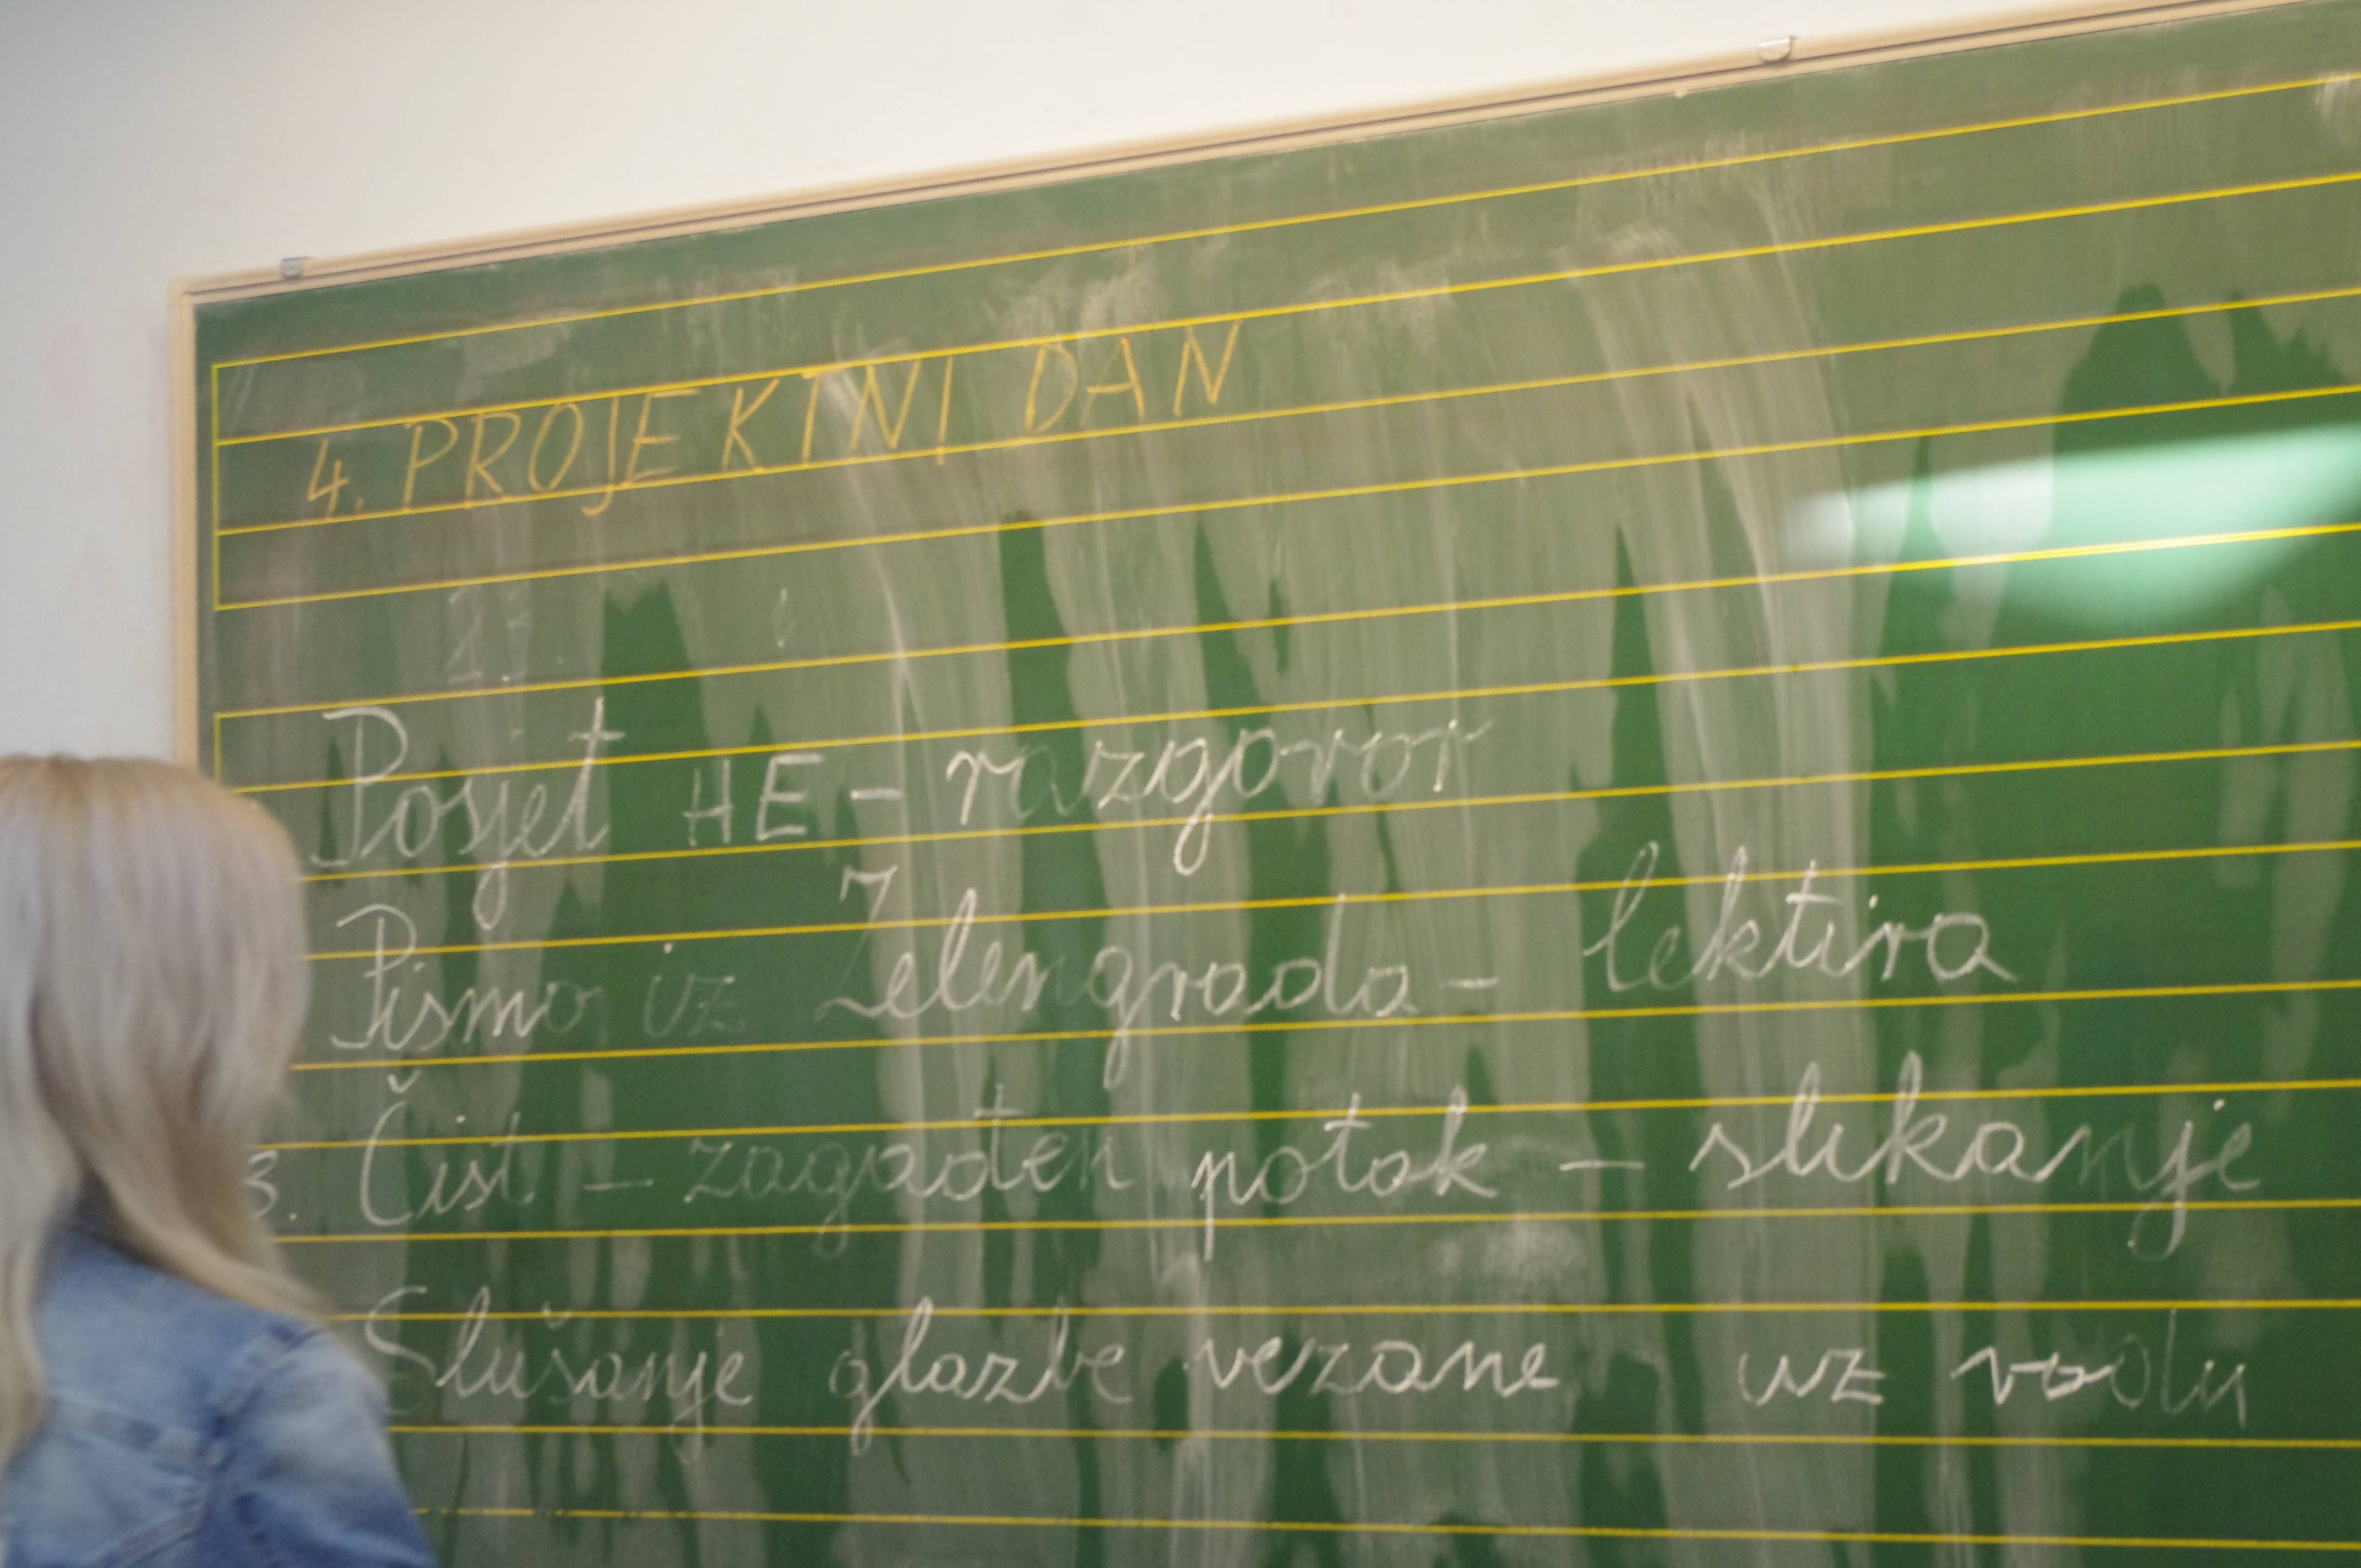 4. PROJEKTNI DAN
Posjet HE - razgovor
Pismo iz Zelengrada - lektira
3. Čist - zagađen potok - slikanje
Slušanje glazbe vezane uz vodu